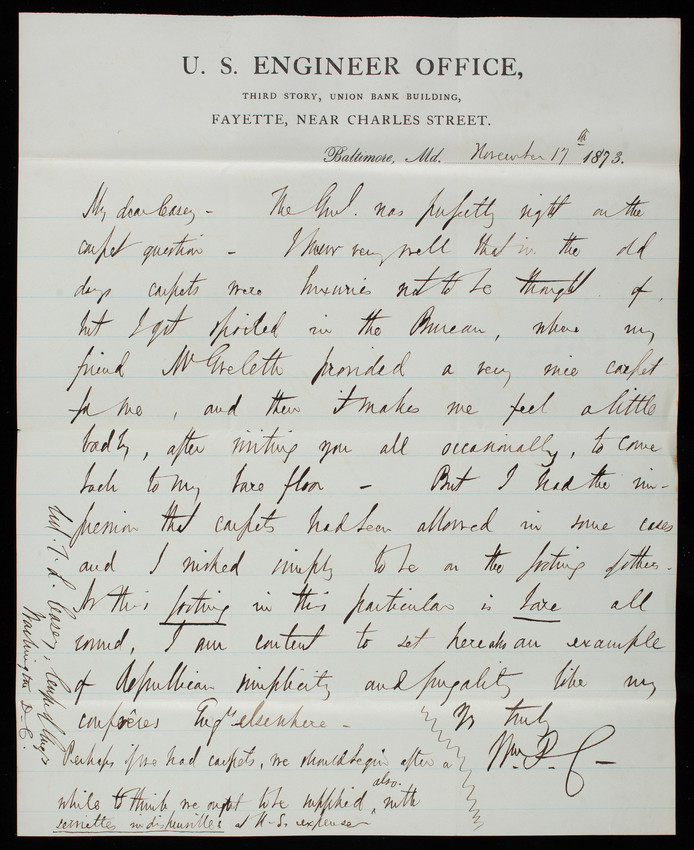 U. S. ENGINEER OFFICE,
THIRD STORY, UNION BANK BUILDING,
FAYETTE, NEAR CHARLES STREET.
Baltimore, Md. November 17th 1873.
My dear Casey - The Genl. was perfectly right on the
carpet question - I know very well that in the old
days carpets were luxuries not to be thought of,
but I got spoiled in the Bureau, where my
friend provided a very nice carpet
for me, and then it makes me feel a little
badly, after visiting you all occasionally, to come
back to my bare floor - But I had the im-
pression that carpets had been allowed in some cases
and I wished simply to be on the footing of others.
As this footing in this particular is bare all
round, I am content to set here also an example
of Republican simplicity and frugality like my
confrères Engrs elsewhere -
Yrs truly
Wm. P. C-
Perhaps if we had carpets, we should begin after a
while to think we ought to be supplied, also. with
serviettes indispensables at U.S. expense
Col. T. L. Casey, Corps of Engrs
Washington D.C.